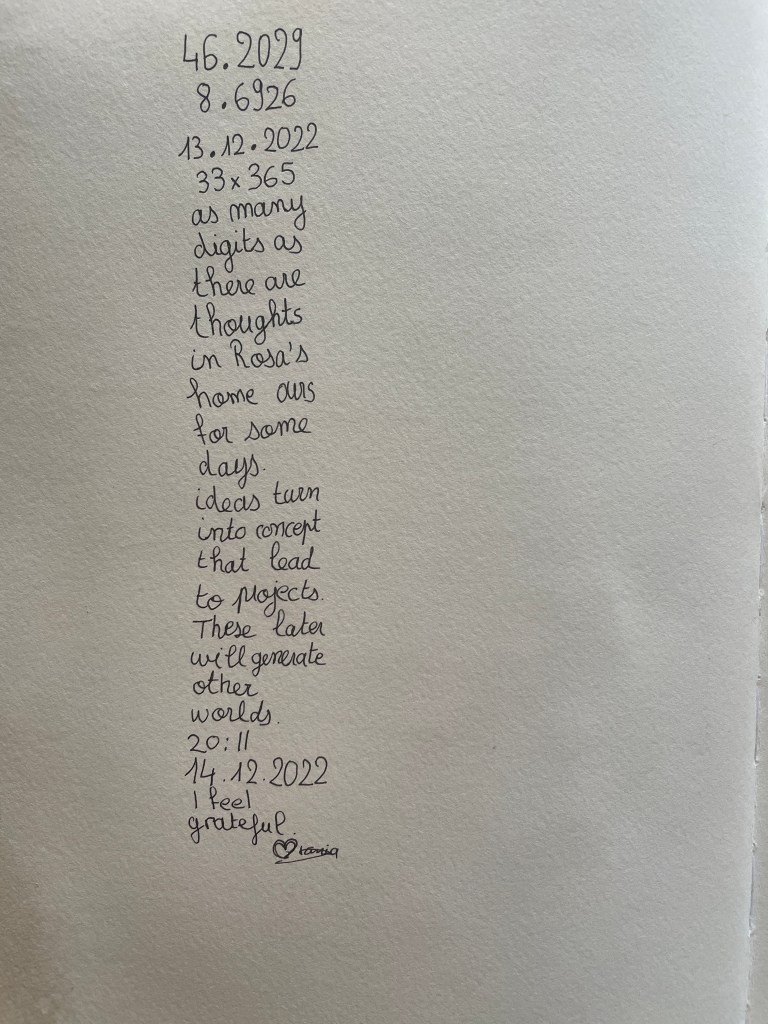 46.2029
8.6926
13.12.2022
33x365
as many
digits as
there are
thoughts
in Rosa's
home ours
for some
days.
ideas turn
into concept
that lead
to projects.
These later
will generate
other
worlds.
20:11
14.12.2022
I feel
grateful.
♡tania